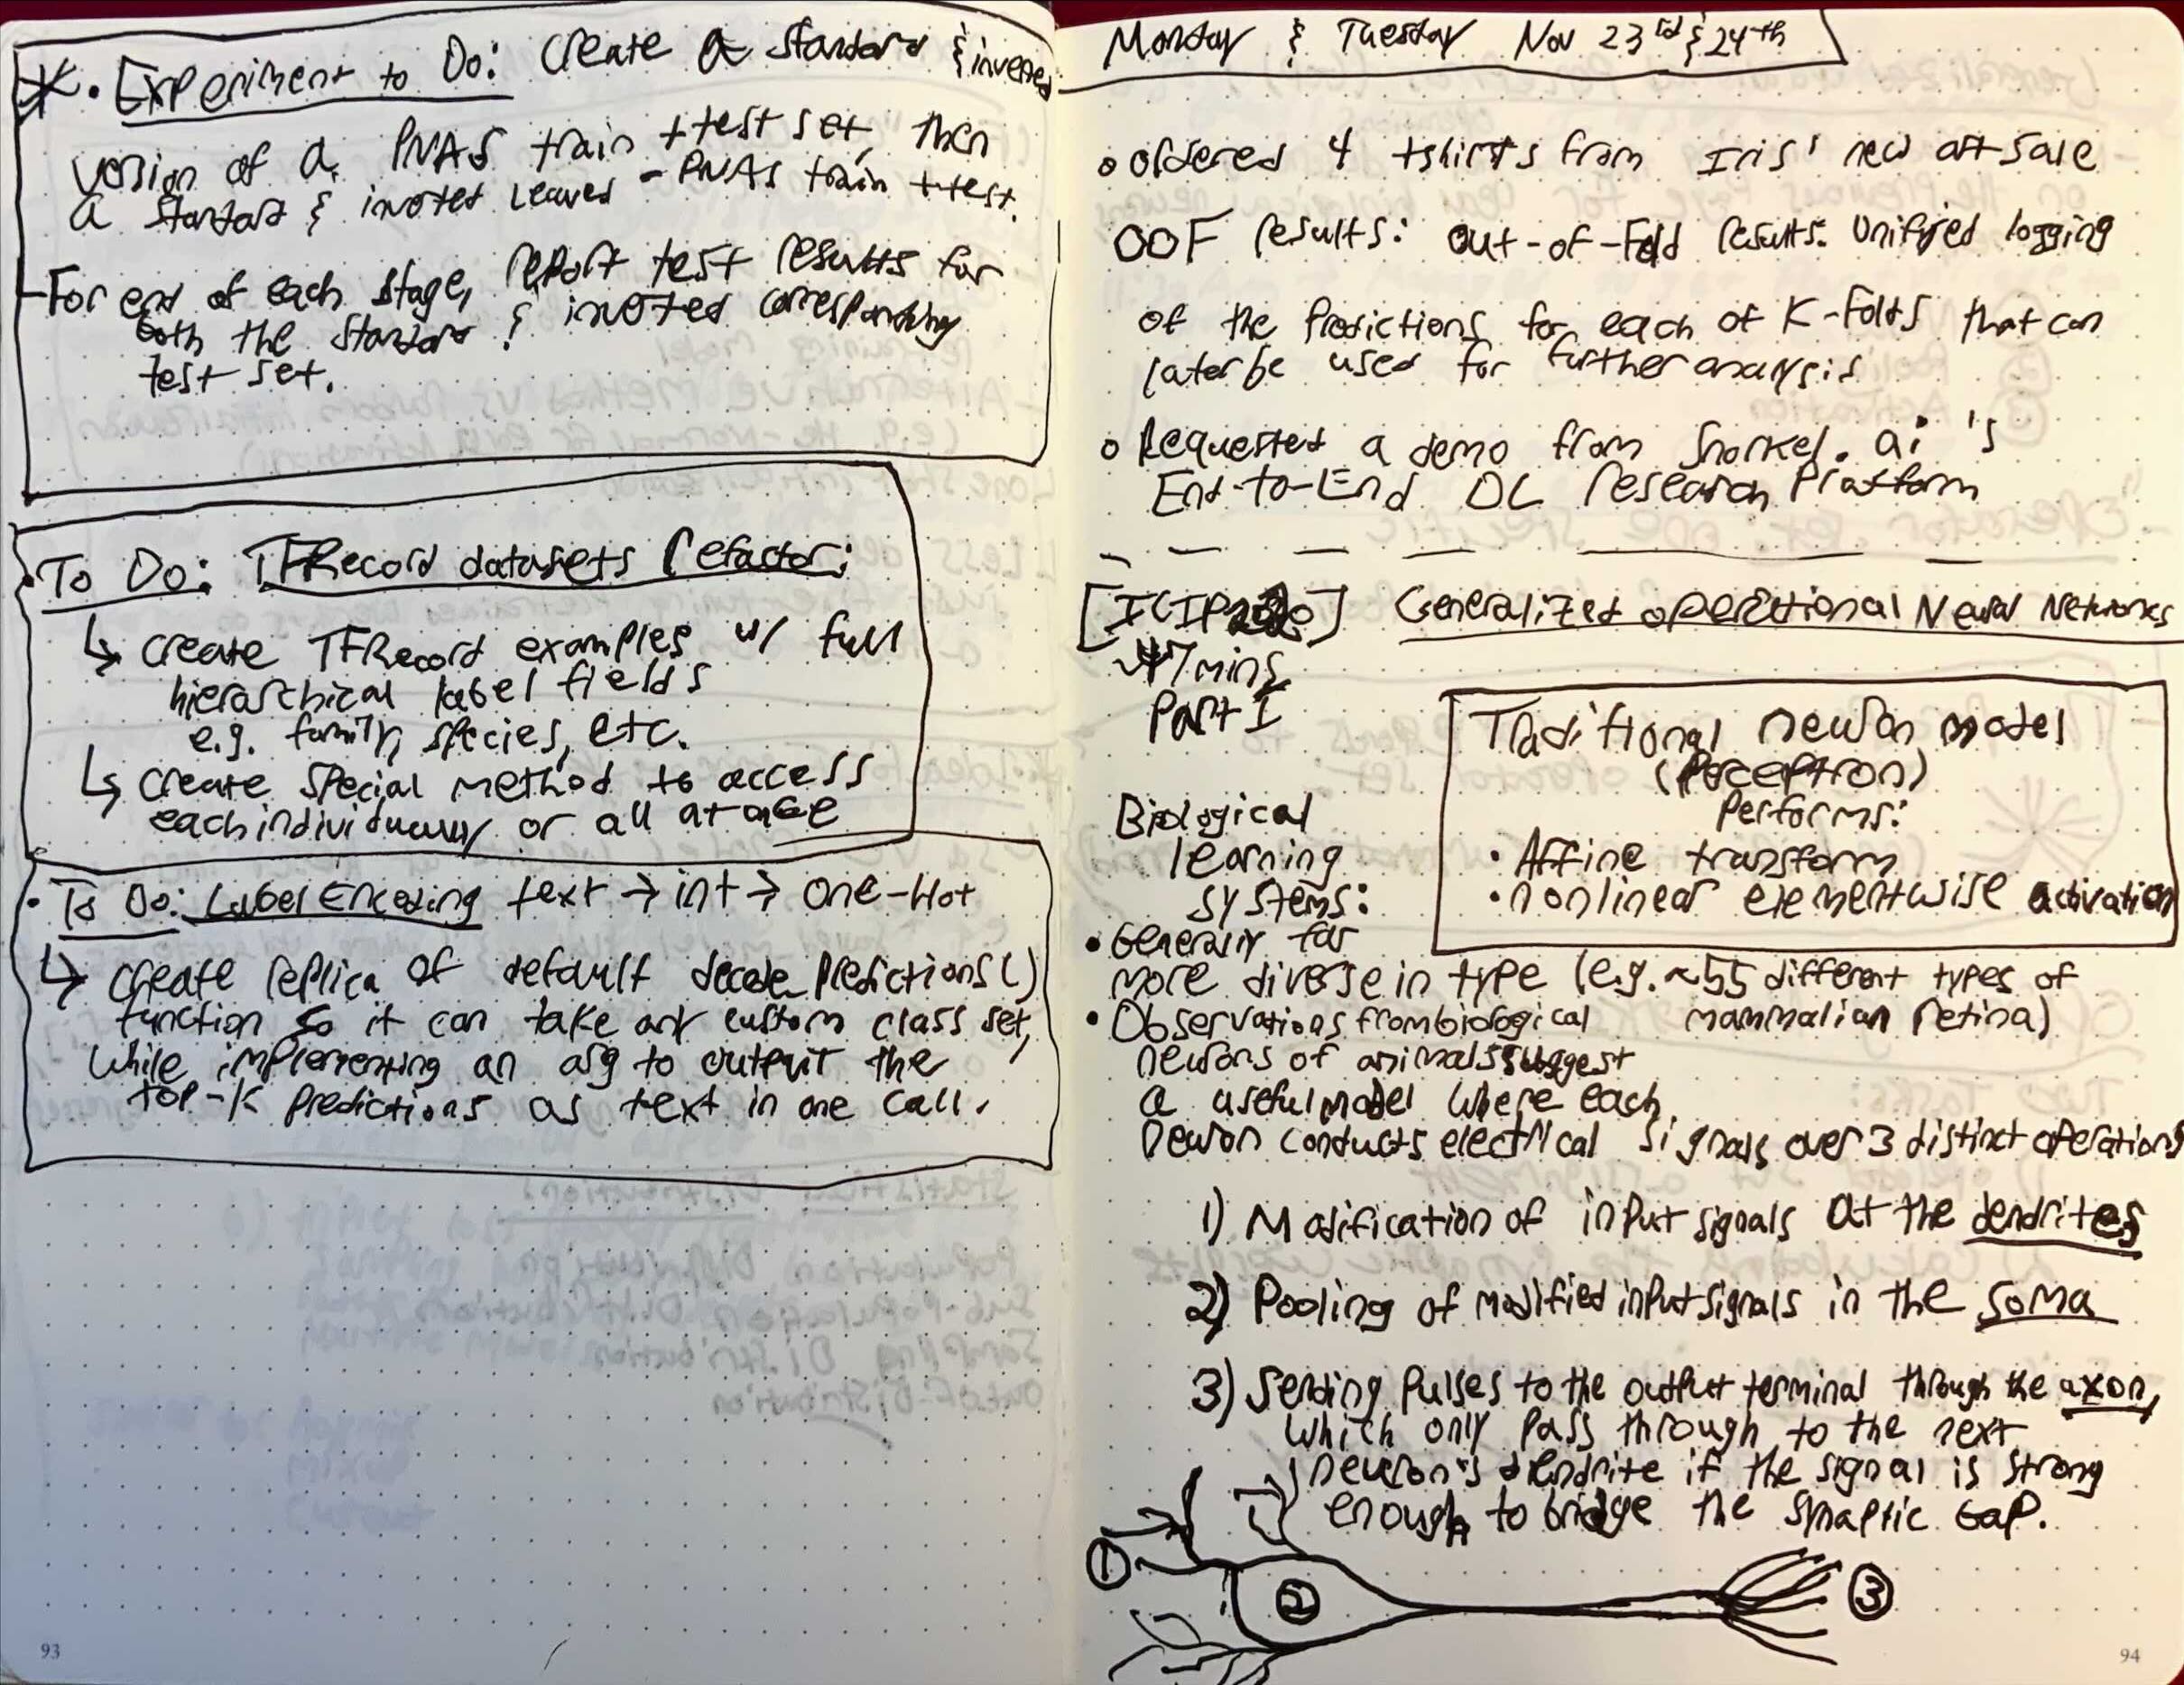 * • Experiment to Do: Create a standard & inverted
version of a PNAS train + test set, then
a standard & inverted Leaves - PNAS train + test.
- For end of each stage, report test results for
both the standard & inverted corresponding
test set.
• To Do: TFRecord datasets refactor:
↳ create TFRecord examples w/ full
hierarchical label fields
e.g. family, species, etc.
↳ create special method to access
each individually or all at once
• To Do: Label Encoding text → int → one-Hot
↳ create replica of default decode_predictions()
function so it can take any custom class set,
while implementing an arg to output the
top-K predictions as text in one call.
93
Monday & Tuesday Nov 23rd & 24th
o ordered 4 tshirts from Iris' new art sale
OOF results: out-of-Fold results. Unified logging
of the Predictions for each of K-Folds that can
later be used for further analysis
o Requested a demo from Snorkel.ai's
End-to-End DL research Platform
[ICIP2020] Generalized operational Neural Networks
~47mins
Part I
Traditional neuron model
(Perceptron)
Performs:
• Affine transform
• nonlinear elementwise activation
Biological
learning
systems:
• Generally far
more diverse in type (e.g. ~55 different types of
mammalian retina)
• Observations from biological
neurons of animals suggest
a useful model where each
neuron conducts electrical signals over 3 distinct operations
1) Modification of input signals at the dendrites
2) Pooling of modified input signals in the soma
3) Sending Pulses to the output terminal through the axon,
which only pass through to the next
neuron's dendrite if the signal is strong
enough to bridge the synaptic gap.
1
2
3
94